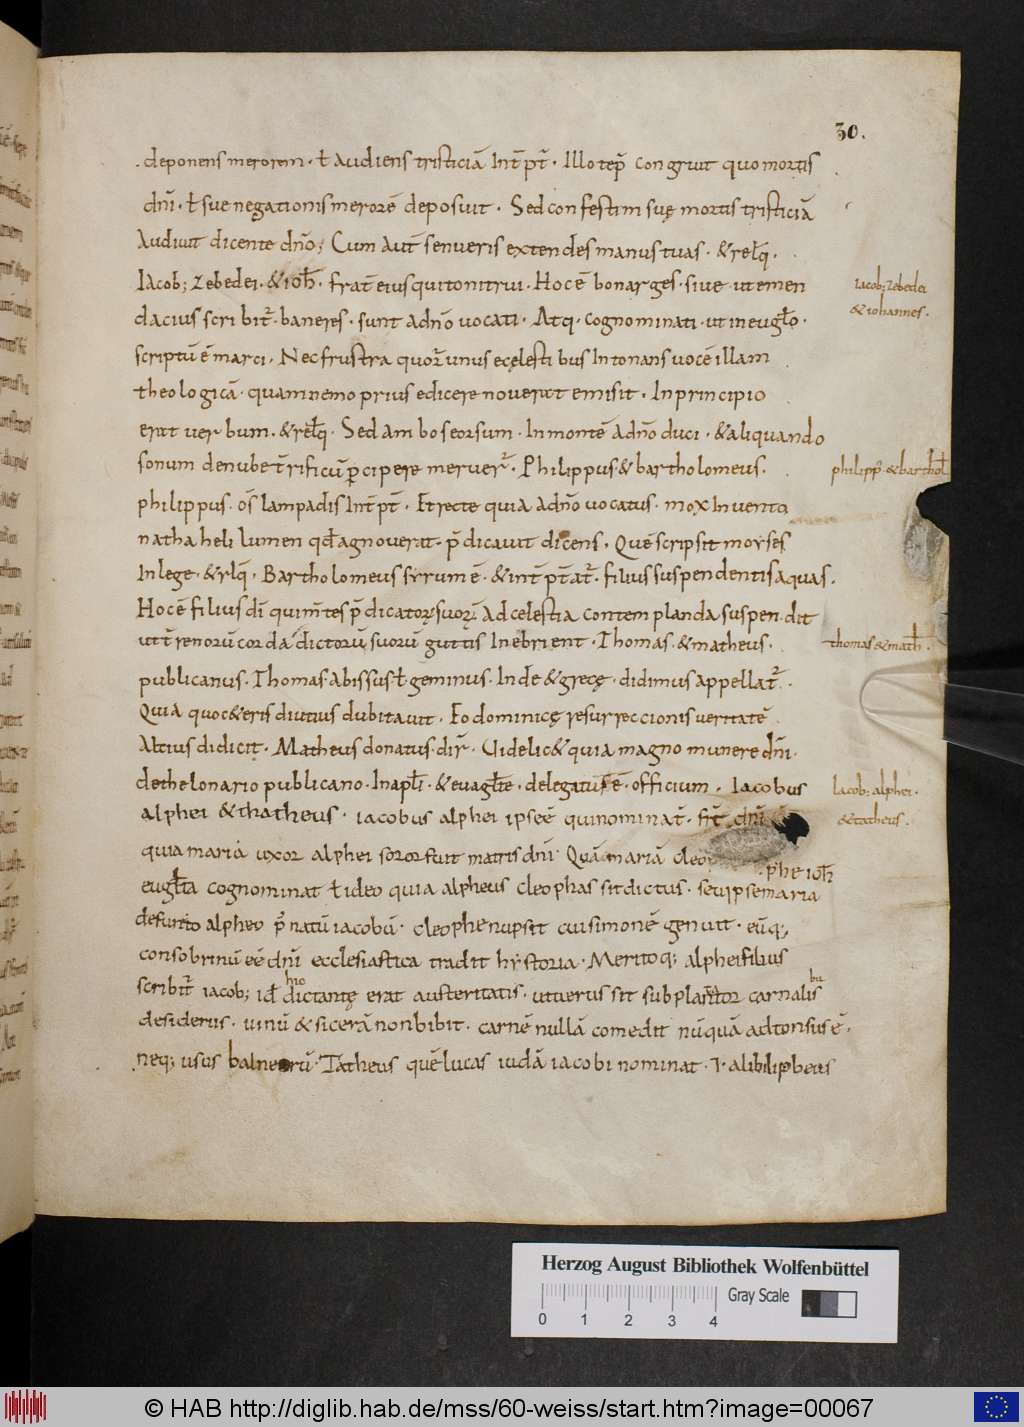 30.
deponens merorem · ł audiens tristiciā Int̄pt̄ · Illo tēp congruit quo mortis
dn̄i · ł sue negationis merorē deposuit · Sed confestim suę mortis tristiciā
Audiuit dicente dn̄o; Cum aut̄ senueris extendes manus tuas · & relq̄ ·
Iacob; Zebedei · & ioħ · frat̄ eius qui tonitrui · Hoc ē bonarges · siue ut emen
dacius scribit̄ · baneres · sunt adn̄o uocati · Atq · cognominati · ut in eugłō ·
scriptū ē marci · Nec frustra quoꝝ unus ecęlestibus Intonans uocē illam
theologicā · quam nemo prius edicere nouerat emisit · In principio
erat uerbum · & relq̄ · Sed ambo seorsum · In montē adn̄o duci · & aliquando
sonum de nube t̄rificū ꝑcipere meruer̄ · Philippus & bartholomeus ·
philippus · os̄ lampadis Int̄pt̄ · Et recte quia adn̄o uocatus · mox Inuento
nathaheli lumen qđ agnouerat · p̄dicauit dicens · Quē scripsit moyses
In lege · & rlq̄ · Bartholomeus syrum ē · & int̄p̄tat̄ · filius suspendentis aquas ·
Hoc ē filius dī qui m̄tes p̄dicatorę suoꝝ · Ad celestia contemplanda suspendit
ut t̄renorū corda dictorū suorū guttis Inebrient · Thomas · & matheus ·
publicanus · Thomas abissus ł geminus · Inde & grecę · didimus appellat̄ ·
Quia quoc&eris diutius dubitauit · Eo dominicę resurreccionis ueritatē
Altius didicit · Matheus donatus · dir̄ · Uidelic& quia magno munere dn̄i ·
de thelonario publicano · In apłi · & euagłte · delegatus ē · officium · Iacobus
alphei & thatheus · iacobus alphei ipse ē qui nominat̄ · fr̄t dn̄i
quia maria uxor alphei soror fuit matris dn̄i Quā mariā cleo phe ioħ
eugłta cognominat ł ideo quia alpheus cleophas sit dictus · seu ipse maria
defuncto alpheo p̄ natū iacobū · cleophe nupsit cui simonē genuit · eūq;
consobrinū eē dn̄i ecclesiastica tradit hystoria · Merito q; alphei filius
scribit̄ iacob; id̄ dictantę erat austeritatis · ut uerus sit subplantor carnalibus
desiderus · uinū & sicerā non bibit · carnē nullā comedit nūquā adtonsus ē ·
neq; usus balneorū · Tatheus quē lucas iudā iacobi nominat · & alibi lipbeus
Iacob; Zebedei
& iohannes ·
philipp; & barthoł
thomas & matħ ·
Iacob; alphei ·
& tatheus ·
Herzog August Bibliothek Wolfenbüttel
Gray Scale
0 1 2 3 4
© HAB http://diglib.hab.de/mss/60-weiss/start.htm?image=00067